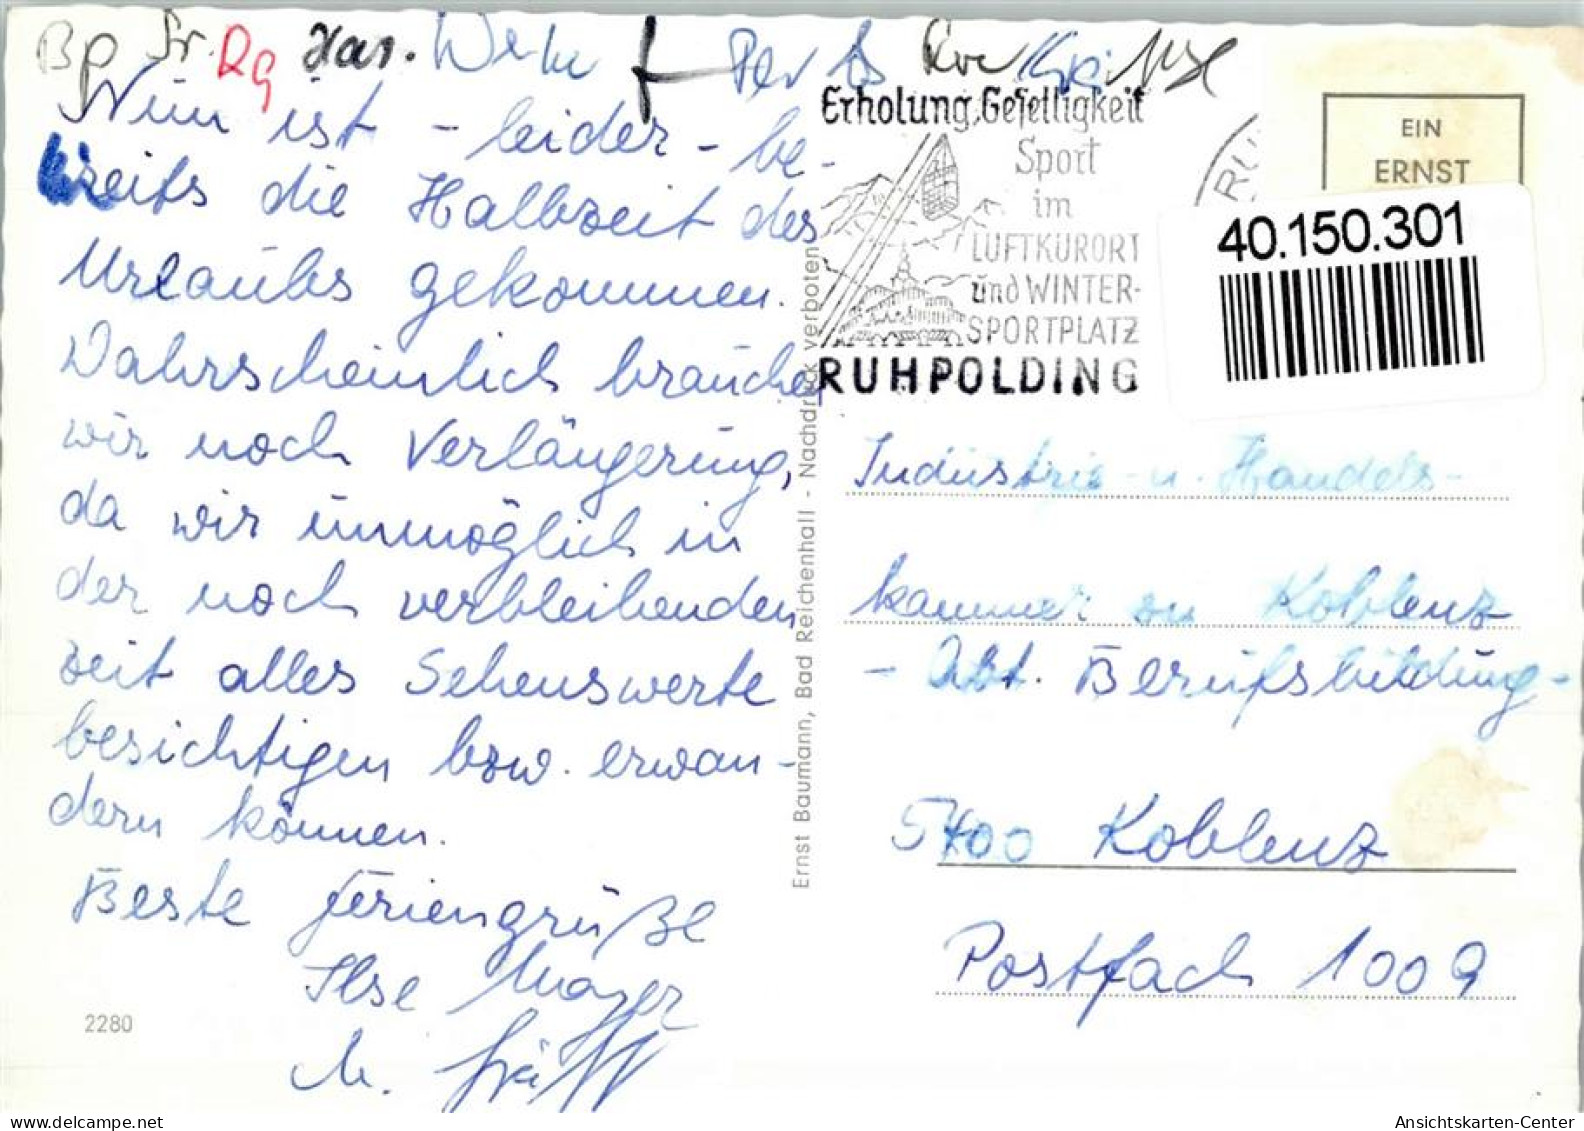 Bp Fr. Rg Har.
Nun ist - leider - be-
reits die Halbzeit des
Urlaubs gekommen.
Wahrscheinlich brauchen
wir noch Verlängerung,
da wir unmöglich in
der noch verbleibenden
Zeit alles Sehenswerte
besichtigen bzw. erwan-
dern können.
Beste Feriengrüße
Ilse Mayer
2280
Ernst Baumann, Bad Reichenhall - Nachdruck verboten
Erholung, Geselligkeit
Sport
im
LUFTKURORT
und WINTER-
SPORTPLATZ
RUHPOLDING
RU
EIN
ERNST
40.150.301
Industrie- u. Handels-
kammer zu Koblenz
- Abt. Berufsbildung -
5400 Koblenz
Postfach 1009
delcampe.net
Ansichtskarten-Center